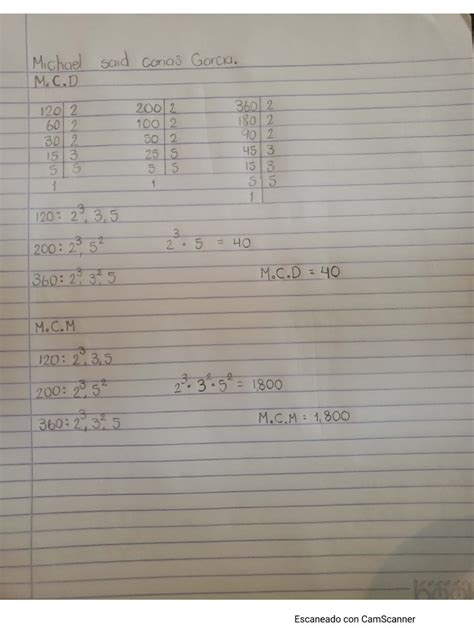 Michael said Carias Garcia.
M.C.D
120 | 2 200 | 2 360 | 2
60 | 2 100 | 2 180 | 2
30 | 2 50 | 2 90 | 2
15 | 3 25 | 5 45 | 3
5 | 5 5 | 5 15 | 3
1 1 5 | 5
1
120: 2³, 3, 5
200: 2³, 5² 2³ · 5 = 40
360: 2³, 3², 5 M.C.D = 40
M.C.M
120: 2³, 3, 5
200: 2³, 5² 2³ · 3² · 5² = 1,800
360: 2³, 3², 5 M.C.M = 1,800
Escaneado con CamScanner